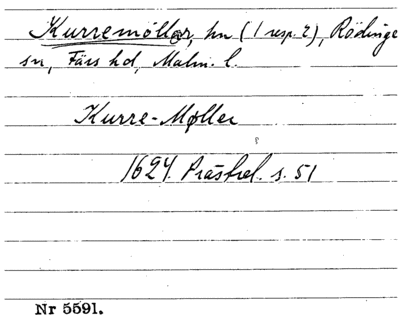 Kurremöllor, hn (1 resp. 2), Rödinge
sn, Färs hd, Malm. l.
Kurre-Møller
1624. Prästrel. s. 51
Nr 5591.